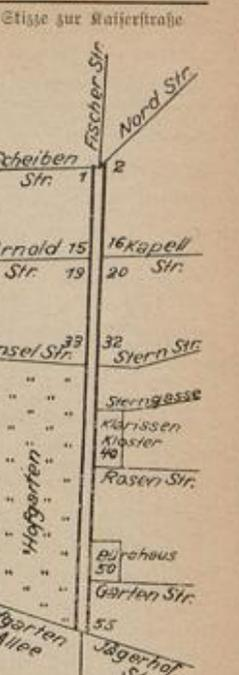 Skizze zur Kaiserstraße
Fischer Str.
Nord Str.
cheiben
Str.
1
2
rnold 15
Str. 19
16 Kapell
20 Str.
nsel Str.
33
32
Stern Str.
Sterngasse
Klarissen
Kloster
40
Rosen Str.
Hofgarten
Bürohaus
50
Garten Str.
55
fgarten
Allee
Jägerhof
Str.